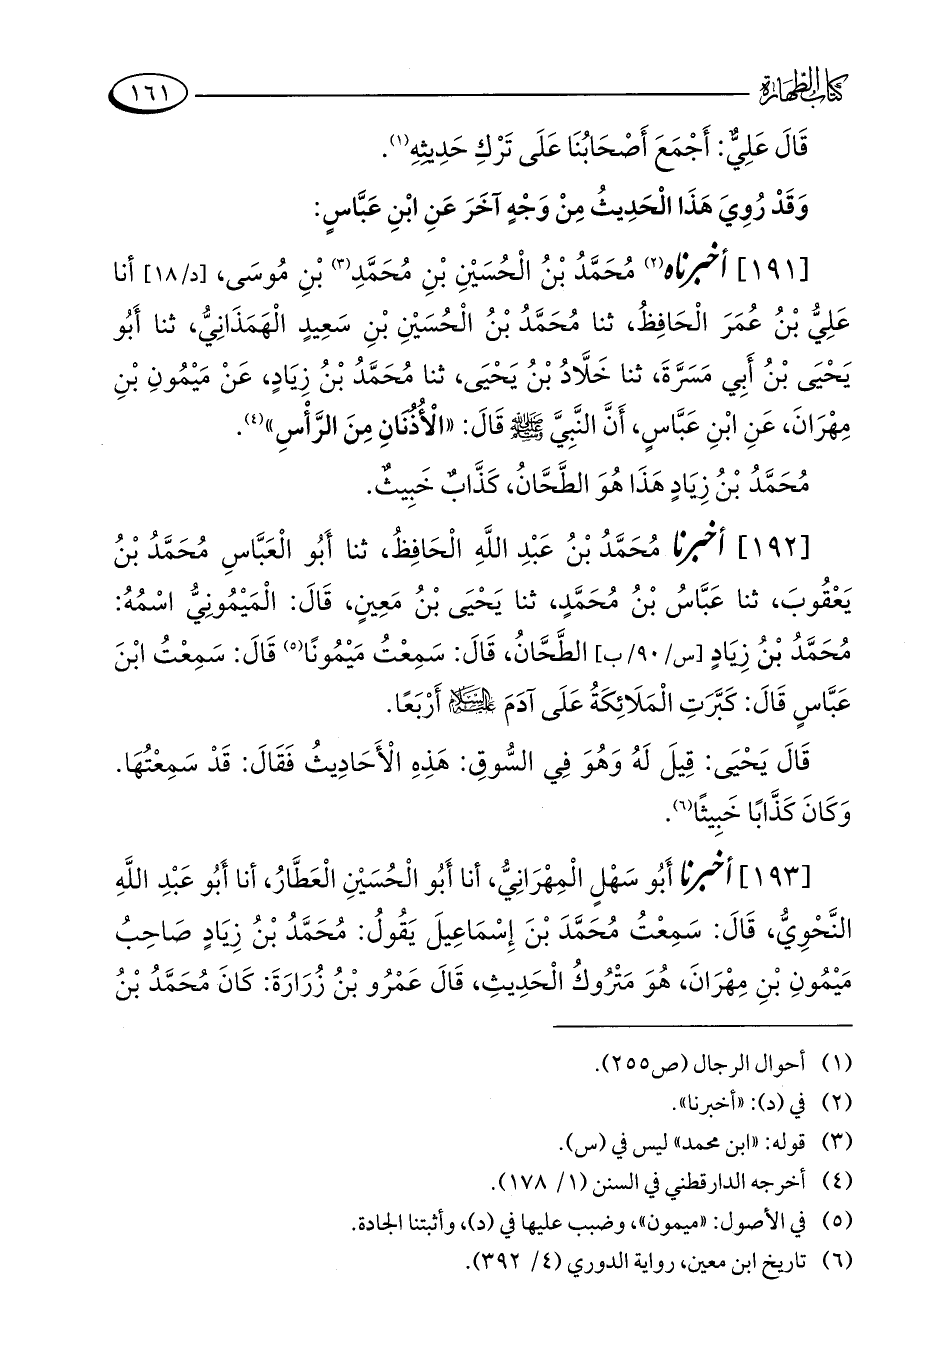 كتاب الطهارة ١٦١
قَالَ عَلِيٌّ: أَجْمَعَ أَصْحَابُنَا عَلَى تَرْكِ حَدِيثِهِ(١).
وَقَدْ رُوِيَ هَذَا الْحَدِيثُ مِنْ وَجْهٍ آخَرَ عَنِ ابْنِ عَبَّاسٍ:
[١٩١] أخبرناه(٢) مُحَمَّدُ بْنُ الْحُسَيْنِ بْنِ مُحَمَّدِ(٣) بْنِ مُوسَى، [د/١٨] أنا
عَلِيُّ بْنُ عُمَرَ الْحَافِظُ، ثنا مُحَمَّدُ بْنُ الْحُسَيْنِ بْنِ سَعِيدٍ الْهَمَذَانِيُّ، ثنا أَبُو
يَحْيَى بْنُ أَبِي مَسَرَّةَ، ثنا خَلَّادُ بْنُ يَحْيَى، ثنا مُحَمَّدُ بْنُ زِيَادٍ، عَنْ مَيْمُونِ بْنِ
مِهْرَانَ، عَنِ ابْنِ عَبَّاسٍ، أَنَّ النَّبِيَّ ﷺ قَالَ: «الْأُذُنَانِ مِنَ الرَّأْسِ»(٤).
مُحَمَّدُ بْنُ زِيَادٍ هَذَا هُوَ الطَّحَّانُ، كَذَّابٌ خَبِيثٌ.
[١٩٢] أخبرنا مُحَمَّدُ بْنُ عَبْدِ اللَّهِ الْحَافِظُ، ثنا أَبُو الْعَبَّاسِ مُحَمَّدُ بْنُ
يَعْقُوبَ، ثنا عَبَّاسُ بْنُ مُحَمَّدٍ، ثنا يَحْيَى بْنُ مَعِينٍ، قَالَ: الْمَيْمُونِيُّ اسْمُهُ:
مُحَمَّدُ بْنُ زِيَادٍ [س/٩٠/ب] الطَّحَّانُ، قَالَ: سَمِعْتُ مَيْمُونًا(٥) قَالَ: سَمِعْتُ ابْنَ
عَبَّاسٍ قَالَ: كَبَّرَتِ الْمَلَائِكَةُ عَلَى آدَمَ عليه السلام أَرْبَعًا.
قَالَ يَحْيَى: قِيلَ لَهُ وَهُوَ فِي السُّوقِ: هَذِهِ الْأَحَادِيثُ فَقَالَ: قَدْ سَمِعْتُهَا.
وَكَانَ كَذَّابًا خَبِيثًا(٦).
[١٩٣] أخبرنا أَبُو سَهْلٍ الْمِهْرَانِيُّ، أنا أَبُو الْحُسَيْنِ الْعَطَّارُ، أنا أَبُو عَبْدِ اللَّهِ
النَّحْوِيُّ، قَالَ: سَمِعْتُ مُحَمَّدَ بْنَ إِسْمَاعِيلَ يَقُولُ: مُحَمَّدُ بْنُ زِيَادٍ صَاحِبُ
مَيْمُونِ بْنِ مِهْرَانَ، هُوَ مَتْرُوكُ الْحَدِيثِ، قَالَ عَمْرُو بْنُ زُرَارَةَ: كَانَ مُحَمَّدُ بْنُ
(١) أحوال الرجال (ص٢٥٥).
(٢) في (د): «أخبرنا».
(٣) قوله: «ابن محمد» ليس في (س).
(٤) أخرجه الدارقطني في السنن (١/ ١٧٨).
(٥) في الأصول: «ميمون»، وضبب عليها في (د)، وأثبتنا الجادة.
(٦) تاريخ ابن معين، رواية الدوري (٤/ ٣٩٢).